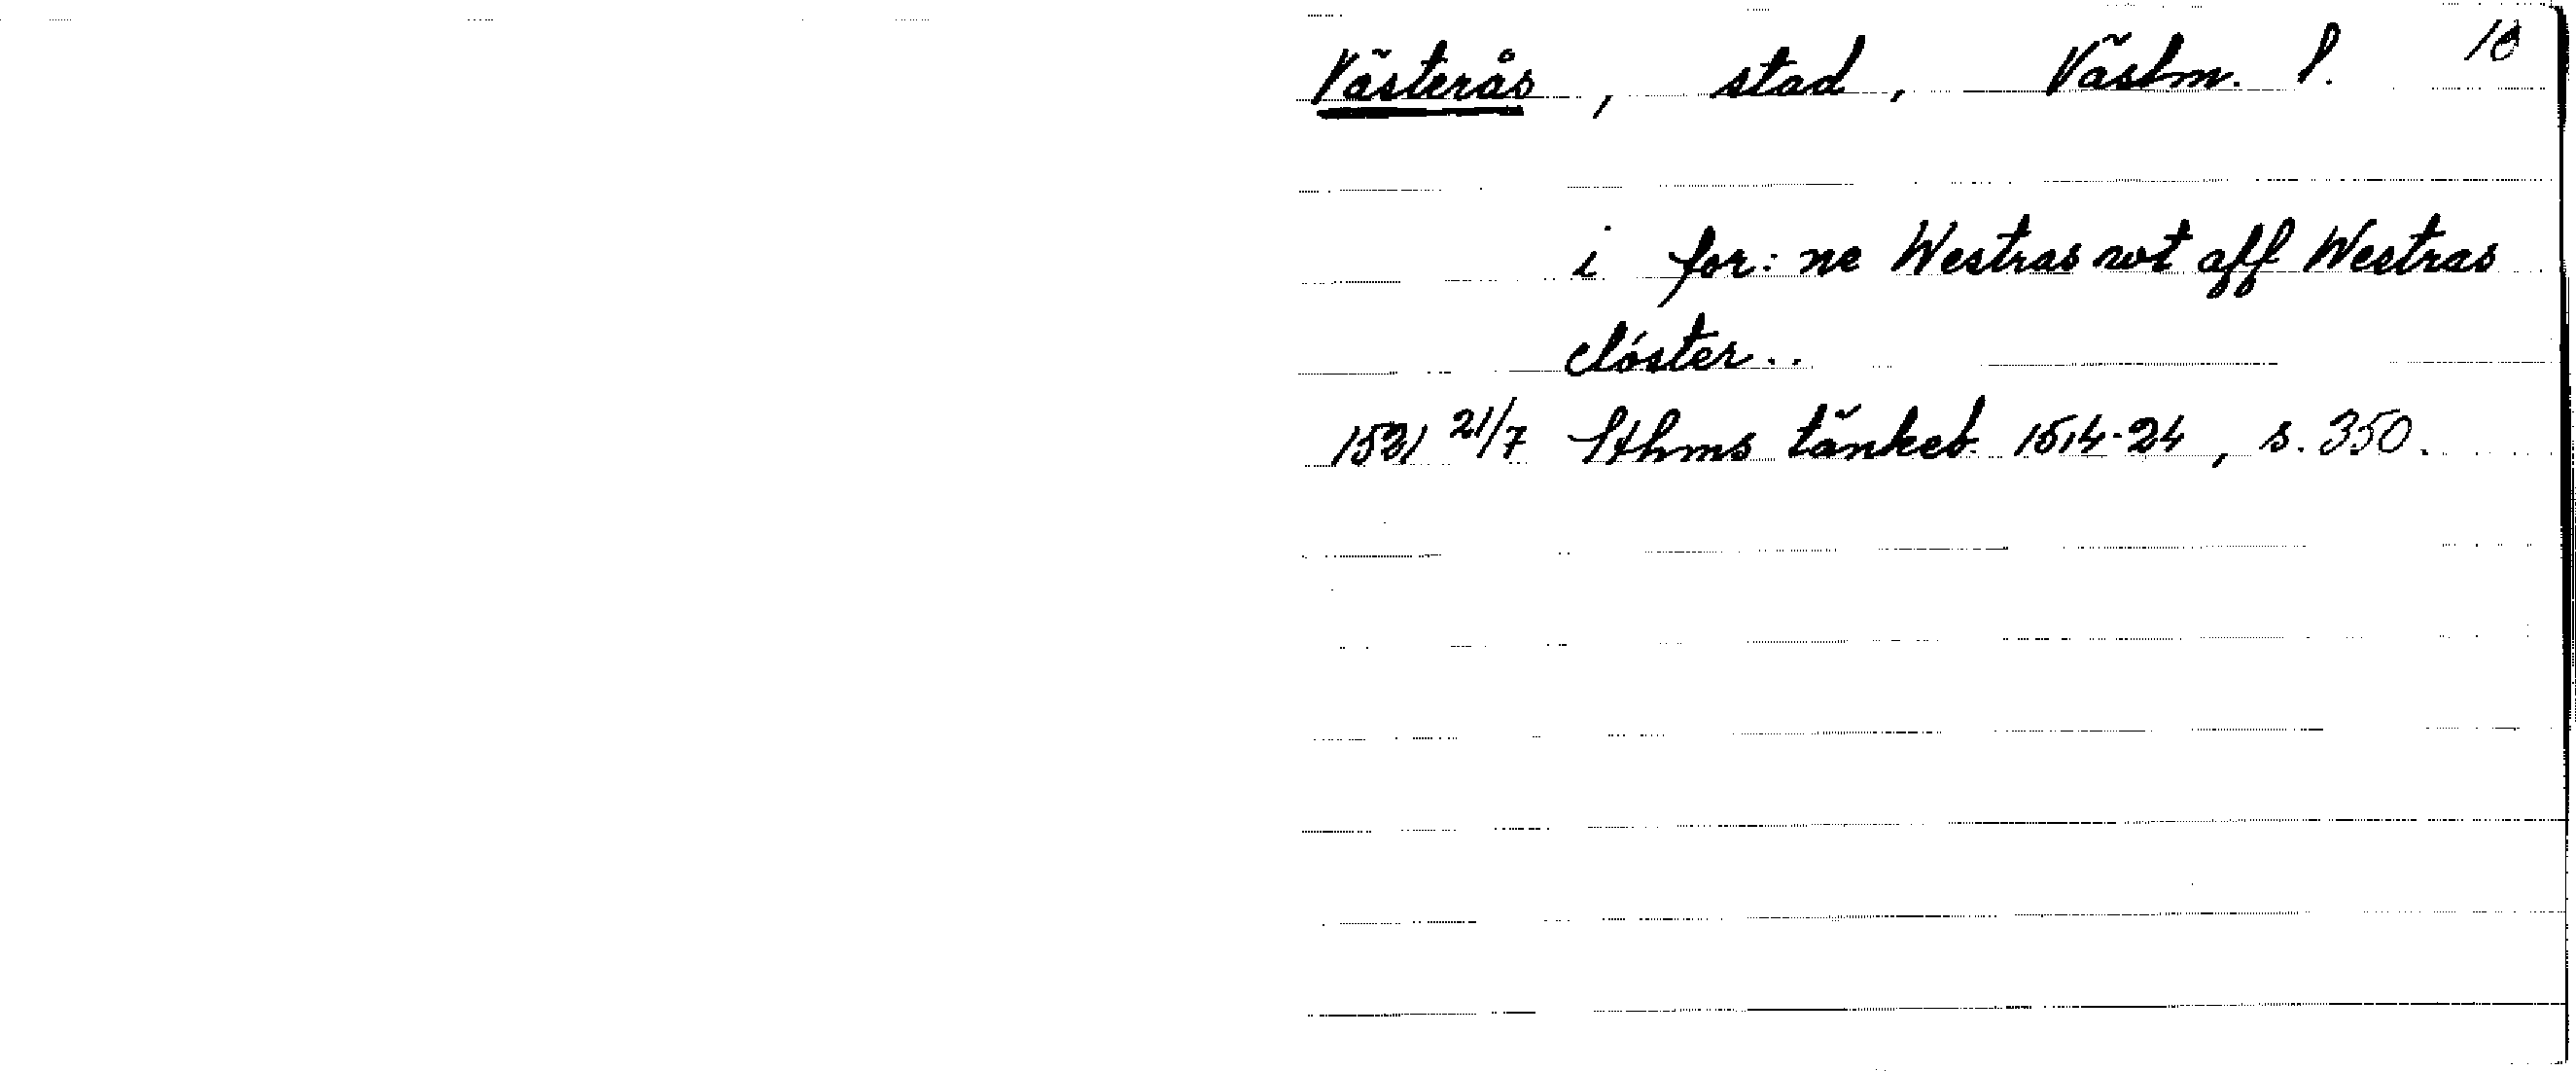 Västerås, stad, Västm. l. 10
i for: ne Westras wt aff Westras
clóster..
1521 21/7 Sthms tänkeb. 1514-24, s. 350.